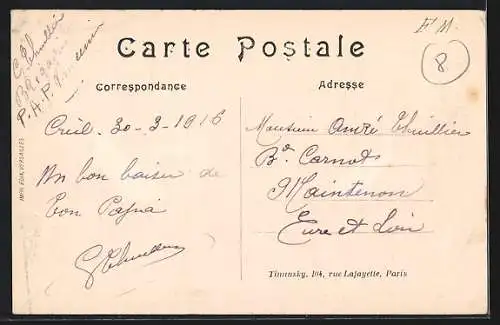 G Thuillier
P.A.P.
F M.
8
Carte Postale
Correspondance
Adresse
Creil. 30-3-1916
Un bon baiser de
ton Papa
G Thuillier
Monsieur André Thuillier
Bd Carnot
Maintenon
Eure et Loir
IMP. EDIA, VERSAILLES
Timusky, 104, rue Lafayette, Paris